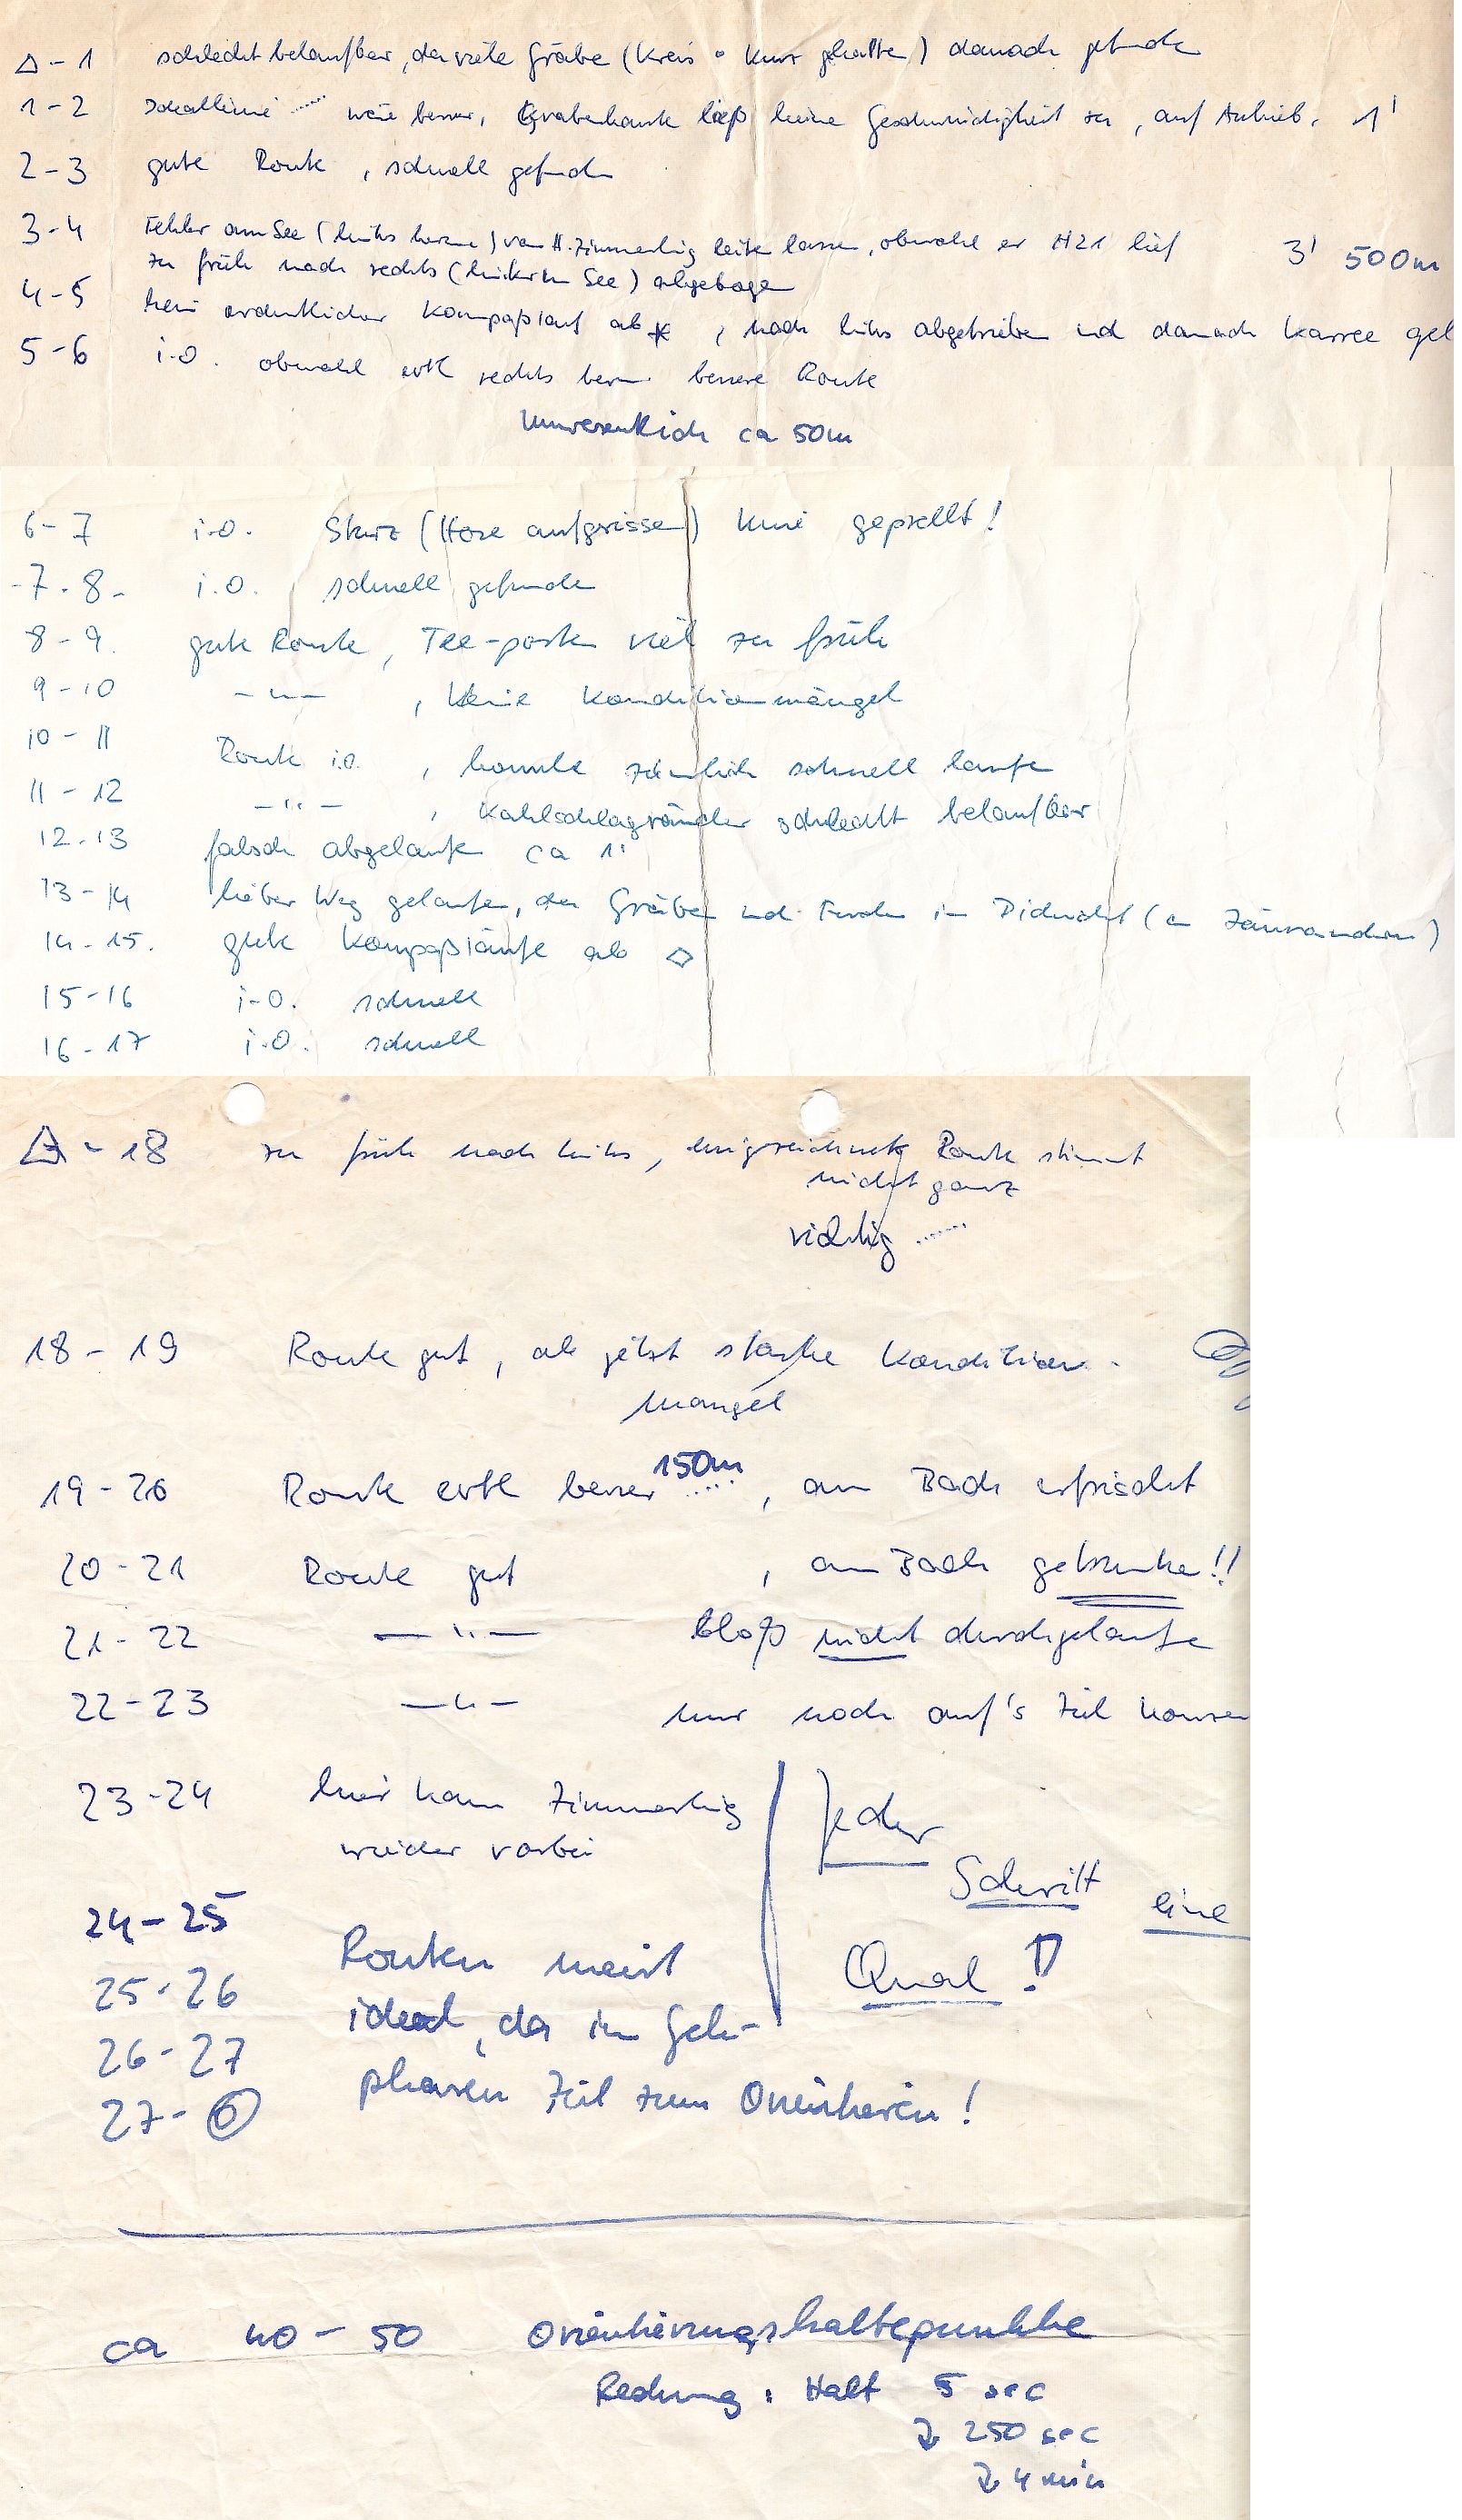 △ - 1 schlecht belaufbar, da viele Gräbe (Kreis kurz gehalte) danach gefunde
1 - 2 Ideallinie ..... wäre besser, Grabenkante ließ keine Geschwindigkeit zu, auf Anhieb. 1'
2 - 3 gute Route, schnell gefunden
3 - 4 Fehler am See (links herum) von H. Zimmerling leite lassen, obwohl er H21 lief 3' 500m
zu früh nach rechts (hinterm See) abgebogen
4 - 5 kein ordentlicher Kompaßlauf ab, nach links abgetrieben und danach Karree gel
5 - 6 i.O. obwohl evtl rechts herum bessere Route
Unwesentlich ca 50m
6 - 7 i.O. Sturz (Hose aufgerissen) Knie geprellt!
- 7 - 8 - i.O. schnell gefunden
8 - 9. gute Route, Tee-posten viel zu früh
9 - 10 - " - , keine Konditionsmängel
10 - 11 Route i.O. , konnte ziemlich schnell laufen
11 - 12 - " - , Kahlschlagränder schlecht belaufbar
12 - 13 falsch abgelaufen ca 1'
13 - 14 lieber Weg gelaufen, da Gräben und Furchen im Dickicht (
14 - 15. gute Kompaßläufe ab ◇
15 - 16 i.O. schnell
16 - 17 i.O. schnell
△ - 18 zu früh nach links, eingezeichnete Route stimmt
nicht ganz
richtig .....
18 - 19 Route gut, ab jetzt starke Konditions-
mangel
150m
19 - 20 Route evtl besser ....., am Bach erfrischt
20 - 21 Route gut , am Bach getrunken!!
21 - 22 - " - bloß nicht durchgelaufe
22 - 23 - " - nur noch auf's Ziel
23 - 24 hier kam Zimmerling Jeder
wieder vorbei
Schritt eine
24 - 25
Routen meist Qual!
25 - 26
ideal, da in Geh-
26 - 27
phasen Zeit zum Orientieren!
27 - ◎
ca 40 - 50 Orientierungshaltepunkte
Rechnung: Halt 5 sec
250 sec
4 min